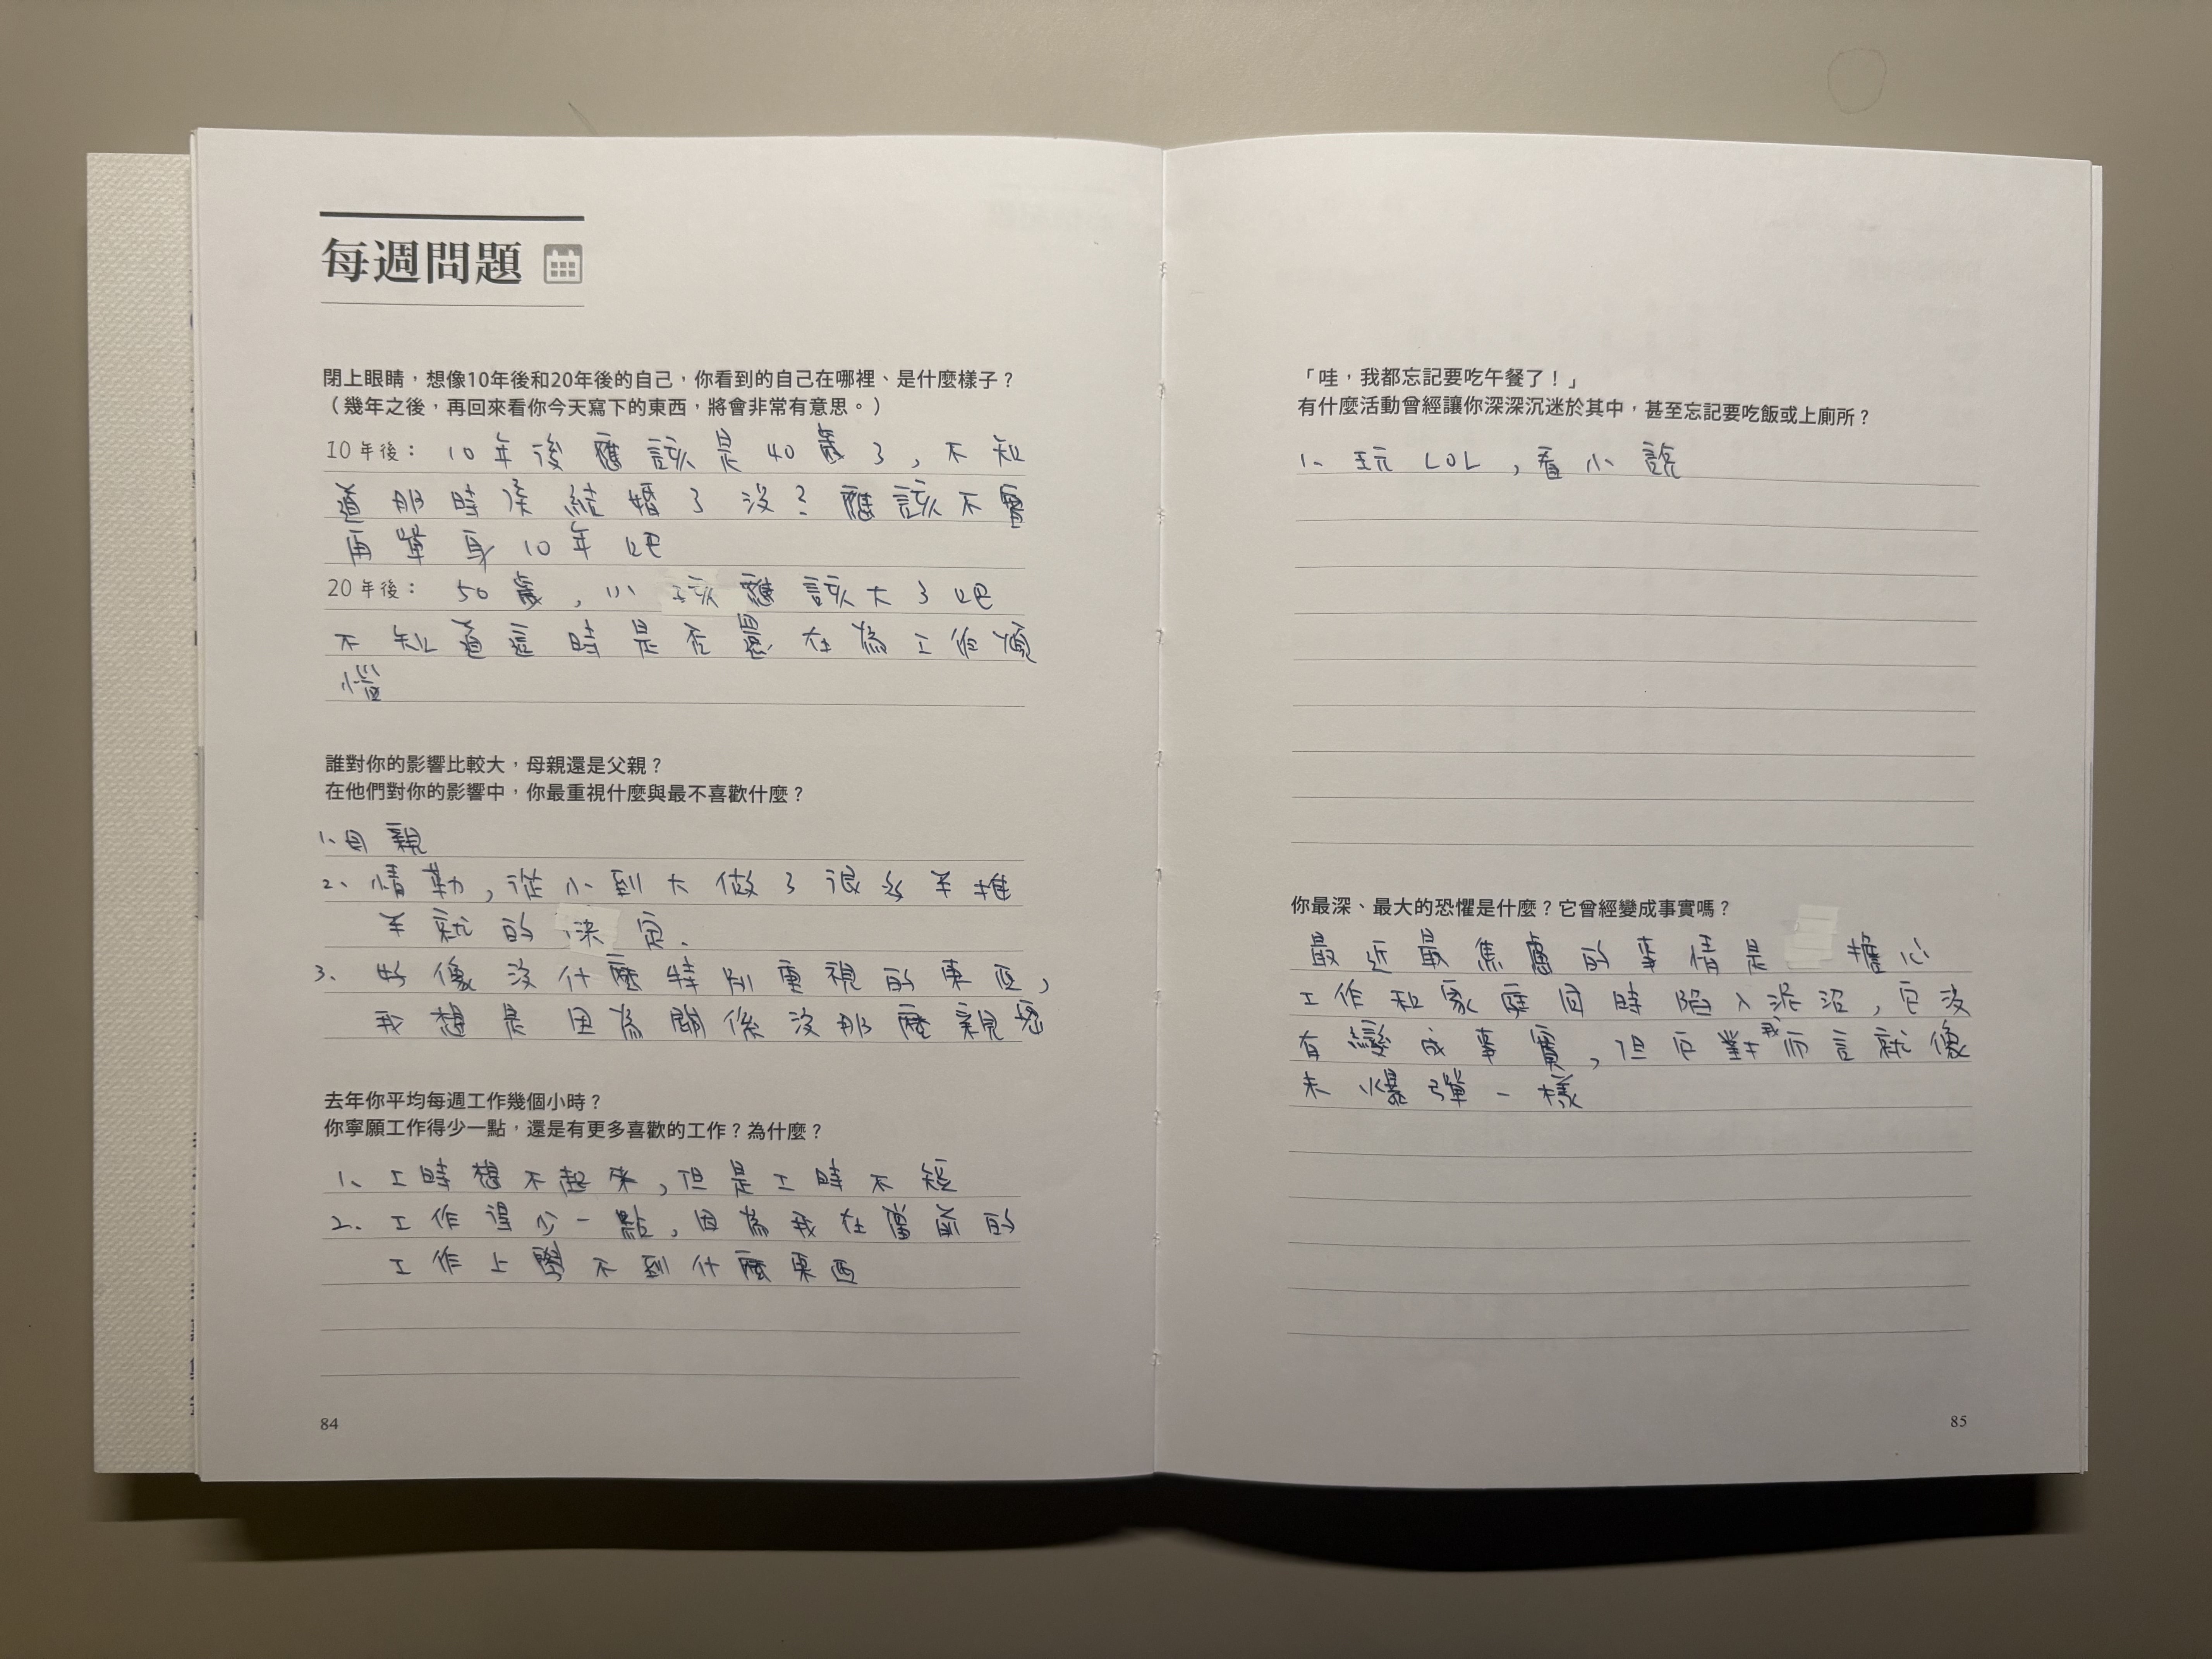 每週問題
閉上眼睛，想像10年後和20年後的自己，你看到的自己在哪裡、是什麼樣子？
（幾年之後，再回來看你今天寫下的東西，將會非常有意思。）
10年後：10年後應該是40歲了，不知
道那時候結婚了沒？應該不會
再單身10年吧
20年後：50歲，小孩應該大了吧
不知道這時是否還在為工作煩
惱
誰對你的影響比較大，母親還是父親？
在他們對你的影響中，你最重視什麼與最不喜歡什麼？
1、母親
2、情勒，從小到大做了很多半推
半就的決定.
3、好像沒什麼特別重視的東西，
我想是因為關係沒那麼親密
去年你平均每週工作幾個小時？
你寧願工作得少一點，還是有更多喜歡的工作？為什麼？
1、工時想不起來，但是工時不短
2、工作得少一點，因為我在當前的
工作上學不到什麼東西
84
「哇，我都忘記要吃午餐了！」
有什麼活動曾經讓你深深沉迷於其中，甚至忘記要吃飯或上廁所？
1、玩LOL，看小說
你最深、最大的恐懼是什麼？它曾經變成事實嗎？
最近最焦慮的事情是擔心
工作和家庭同時陷入泥沼，它沒
有變成事實，但它對我而言就像
未爆彈一樣
85